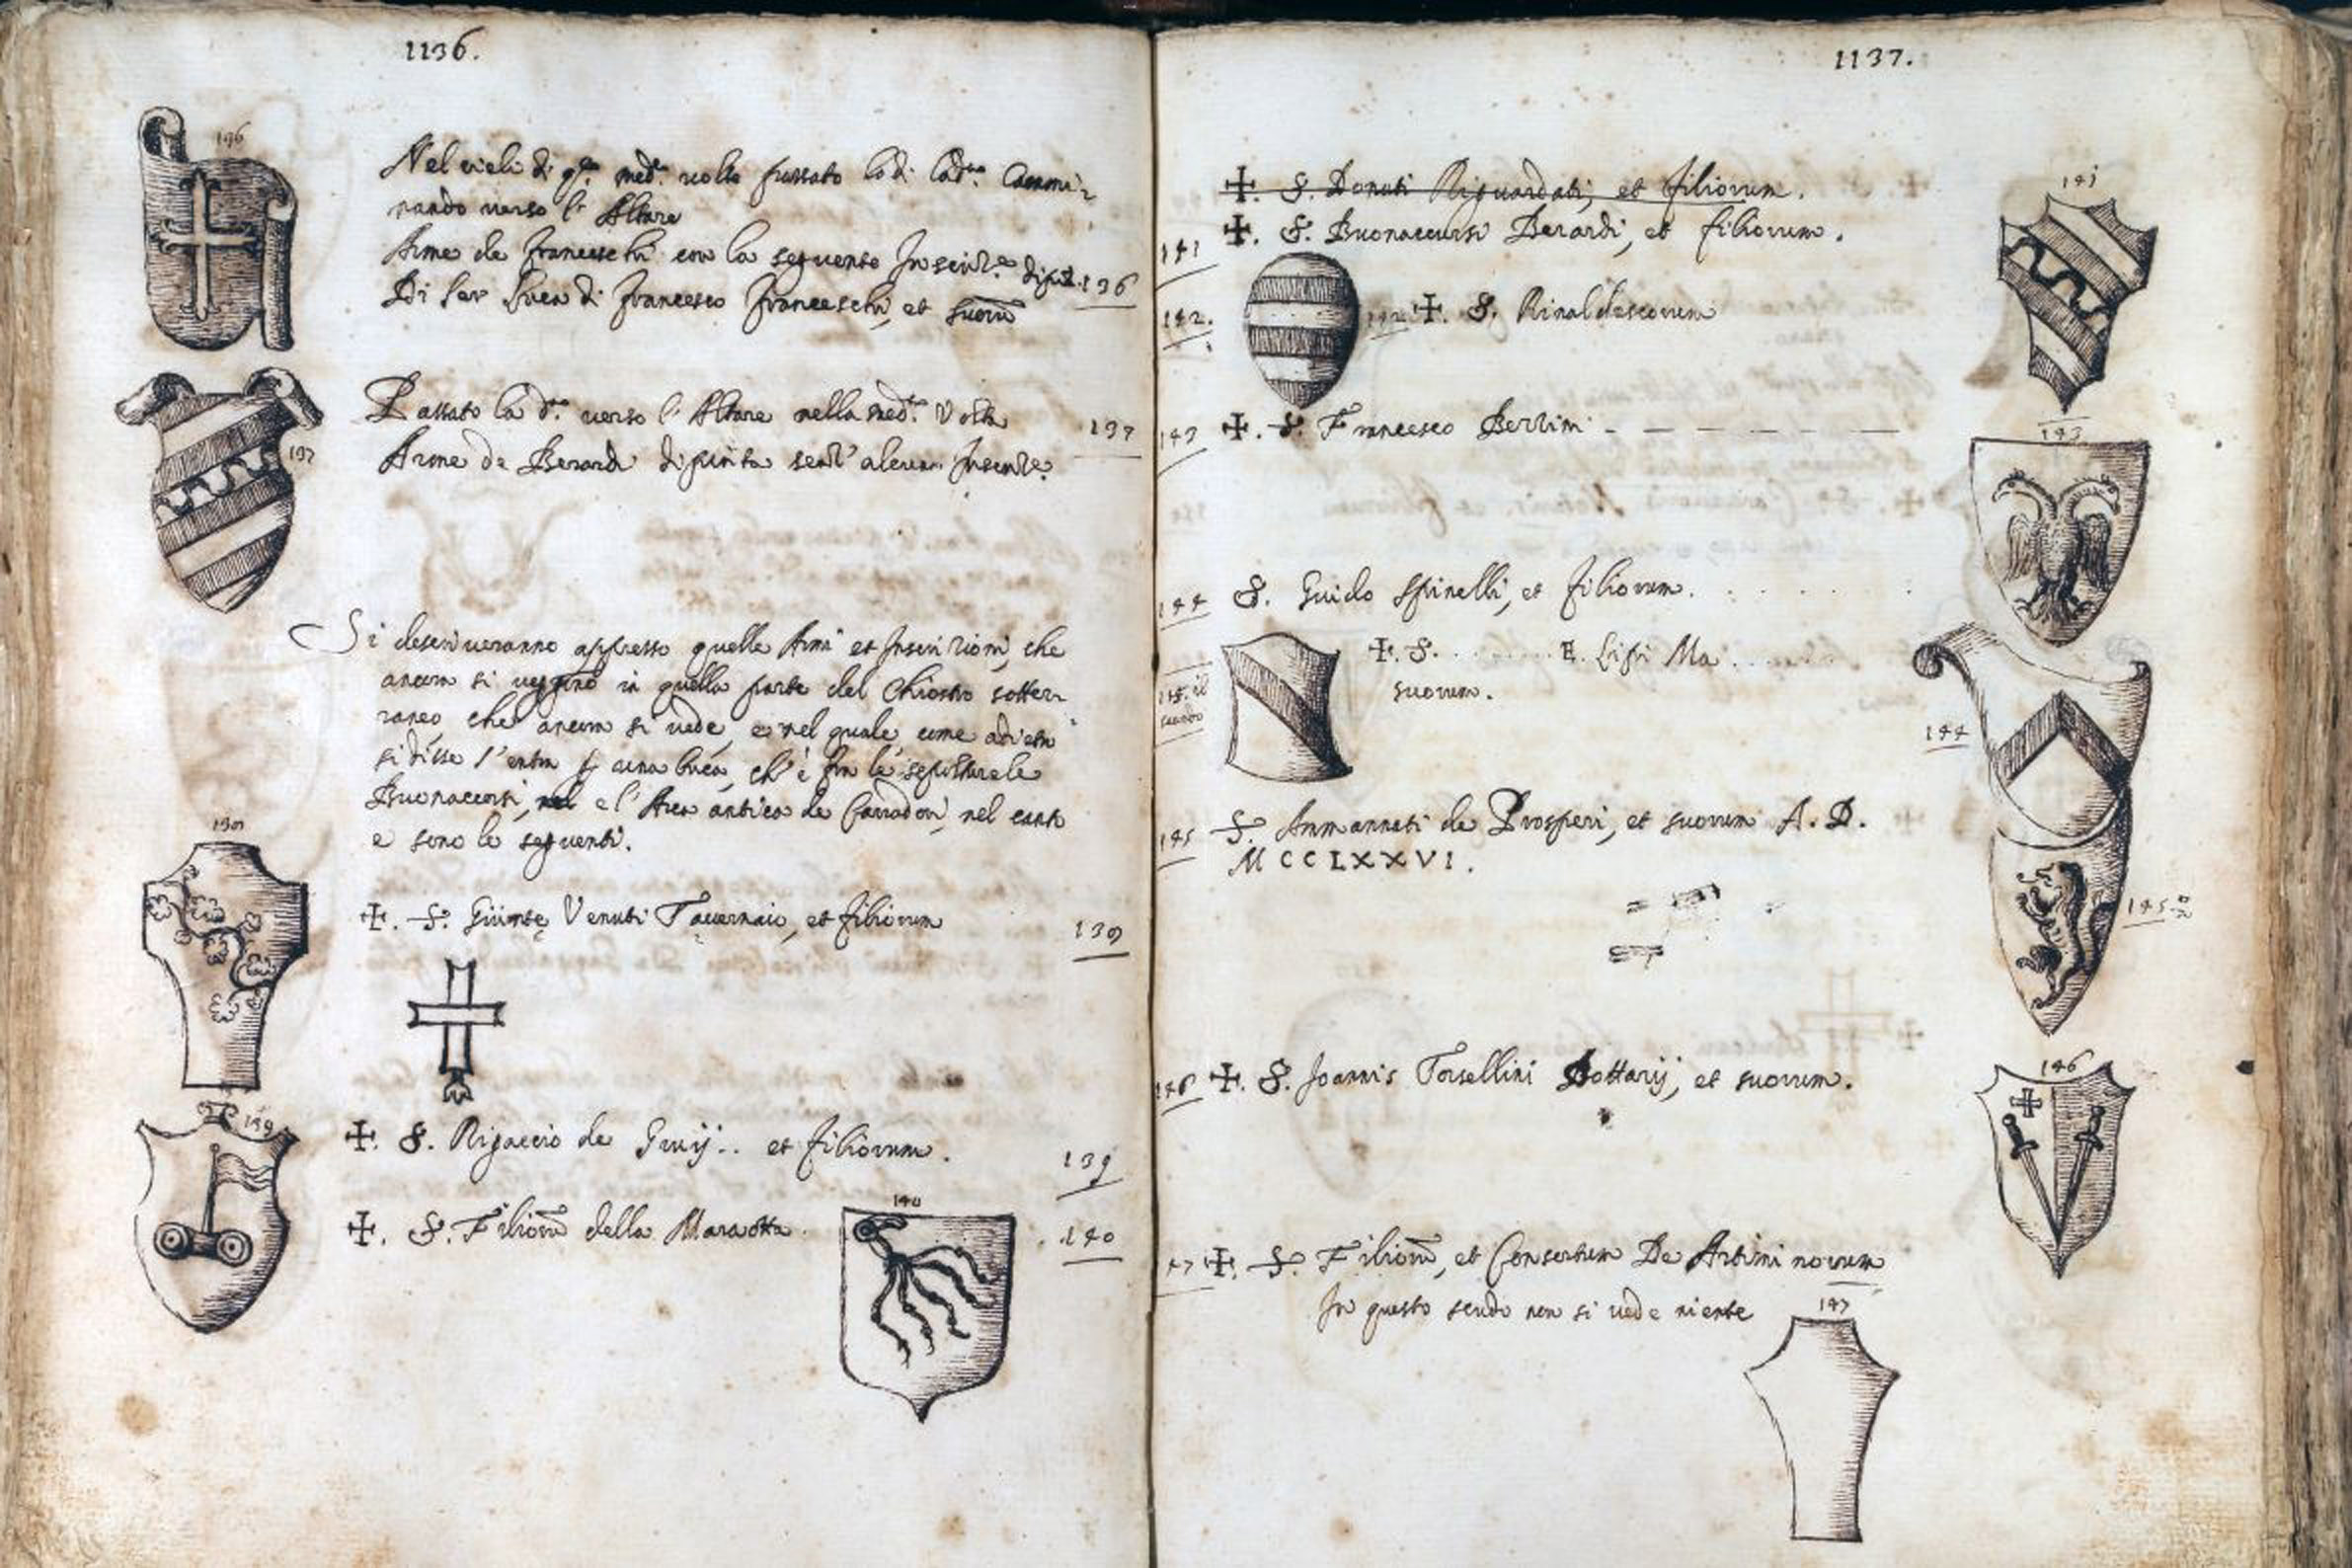 1136.
136
Nel cieli di med. volta passato Cammi-
nando verso l' Altare
Arme de Franceschi con la seguente Inscriz.e
Di Ser Luca di Francesco Franceschi, et suorũ
136
Passato la d.a verso l' Altare nella med.a Volta
137
Arme de Berardi dipinta senz' alcuna Inscriz.e
137
Si descriveranno appresso quelle Armi et Inscrizioni, che
ancora si veggono in quella parte del Chiostro sotter-
raneo, che ancora si vede, e nel quale come adietro
si disse s'entra una buca, ch' è fra le sepolture de
Buonaccorsi, e l' Arca antica de nel canto
e sono le seguenti.
138
✠. S. Giunte Venuti Tavernaio, et filiorum
138
✠. S. Rigaccio de Guij.. et filiorum.
139
139
✠. S. Filiorũ della Maraotta.
140
140
1137.
✠. S. Donati Riguardati, et filiorum.
141
✠. S. Buonaccursi Berardi, et filiorum.
141
142. 142 ✠. S. Rinaldescorum
143 ✠. S. Francesco Berrini
143
144 S. Guido Spinelli, et filiorum.
✠. S. . . . . . . E. Lippi Ma . . . . .
145. il suorum.
scudo
144
145 S. Ammannati de Prosperi, et suorum A. D.
M C C L X X V I.
145
146 ✠. S. Joannis Torsellini Bottarij, et suorum.
146
47 ✠. S. Filiorũ, et Consortum De Artiminorum
In questo scudo non si vede niente
147